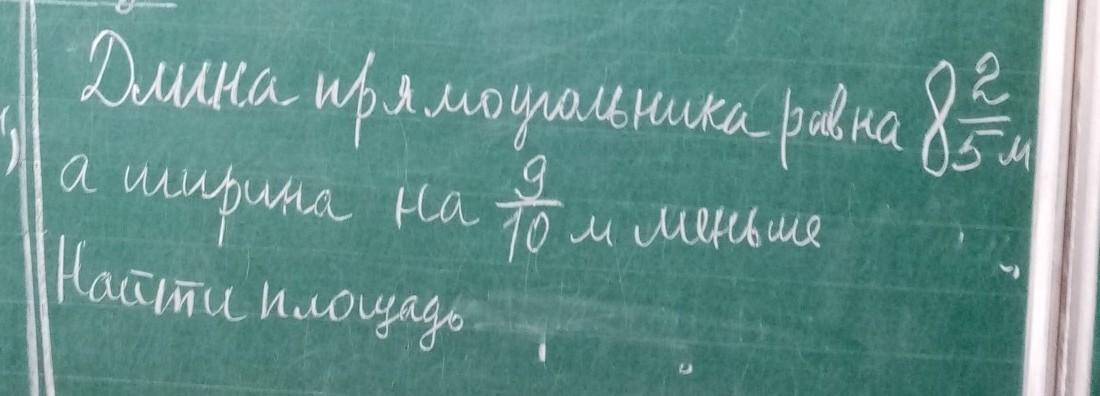 Длина прямоугольника равна 8 2/5 м
а ширина на 9/10 м меньше
Найти площадь